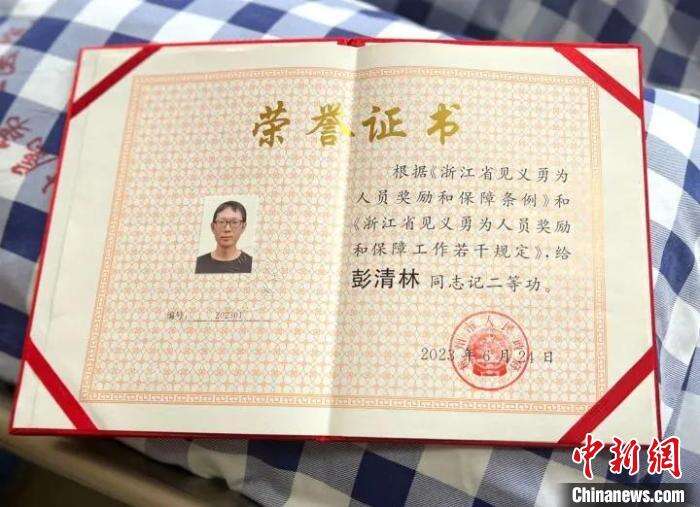 荣誉证书
根据《浙江省见义勇为
人员奖励和保障条例》和
《浙江省见义勇为人员奖励
和保障工作若干规定》，给
彭清林 同志记二等功。
编号：
2023年6月24日
中新网
Chinanews.com